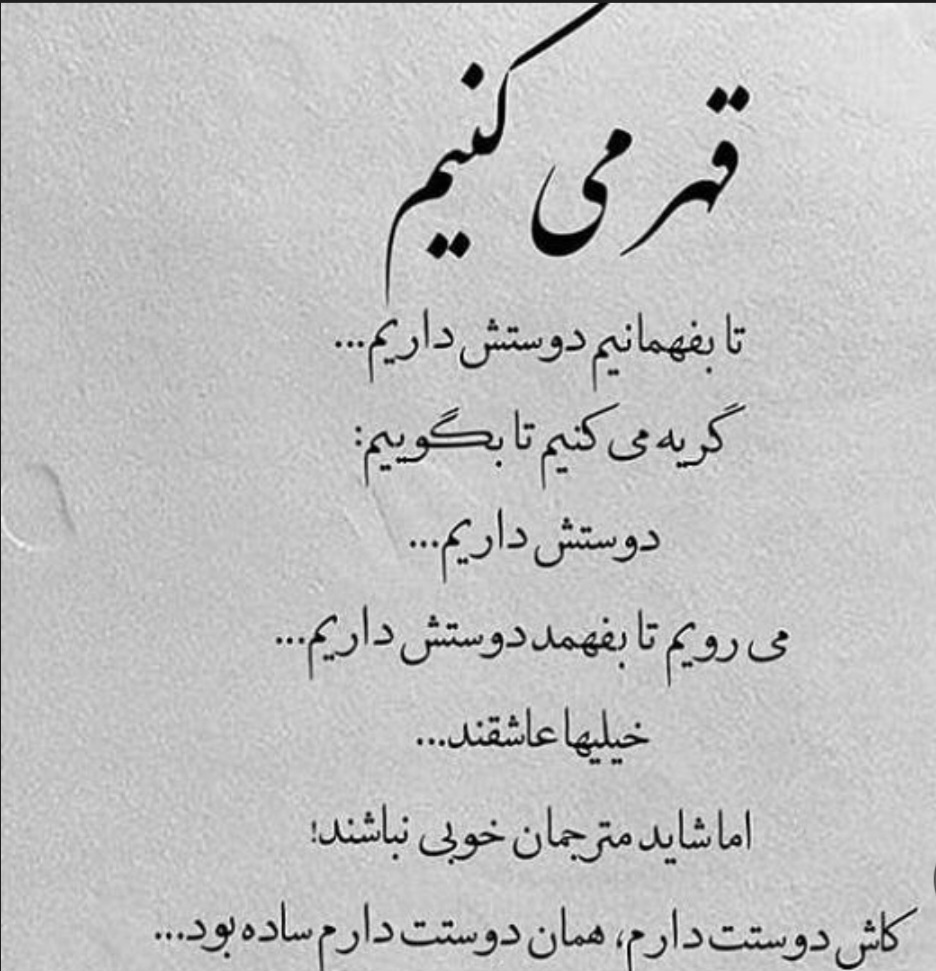 قهر می کنیم
تا بفهمانیم دوستش داریم...
گریه می کنیم تا بگوییم:
دوستش داریم...
می رویم تا بفهمد دوستش داریم...
خیلیها عاشقند...
اما شاید مترجمان خوبی نباشند!
کاش دوستت دارم، همان دوستت دارم ساده بود...